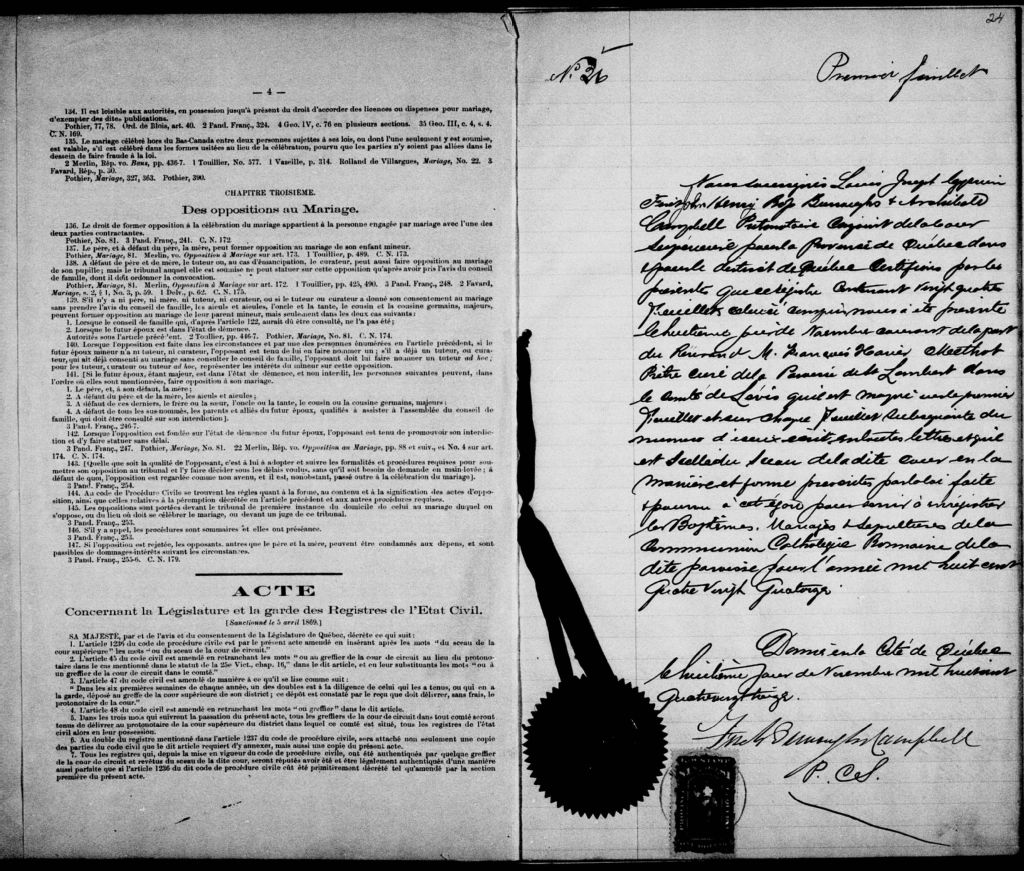 — 4 —
134. Il est loisible aux autorités, en possession jusqu'à présent du droit d'accorder des licences ou dispenses pour mariage,
d'exempter des dites publications.
Pothier, 77, 78. Ord. de Blois, art. 40. 2 Pand. Franç., 324. 4 Geo. IV, c. 76 en plusieurs sections. 35 Geo. III, c. 4, s. 4.
C. N. 169.
135. Le mariage célébré hors du Bas-Canada entre deux personnes sujettes à ses lois, ou dont l'une seulement y est soumise,
est valable, s'il est célébré dans les formes usitées au lieu de la célébration, pourvu que les parties n'y soient pas allées dans le
dessein de faire fraude à la loi.
2 Merlin, Rép. vo. Bans, pp. 436-7. 1 Touillier, No. 577. 1 Vazeille, p. 314. Rolland de Villargues, Mariage, No. 22. 3
Favard, Rép., p. 50.
Pothier, Mariage, 327, 363. Pothier, 390.
CHAPITRE TROISIÈME.
Des oppositions au Mariage.
136. Le droit de former opposition à la célébration du mariage appartient à la personne engagée par mariage avec l'une des
deux parties contractantes.
Pothier, No. 81. 3 Pand. Franç., 241. C. N. 172.
137. Le père, et à défaut du père, la mère, peut former opposition au mariage de son enfant mineur.
Pothier, Mariage, 81. Merlin, vo. Opposition à Mariage sur art. 173. 1 Touillier, p. 489. C. N. 173.
138. A défaut de père et de mère, le tuteur ou, au cas d'émancipation, le curateur, peut aussi faire opposition au mariage
de son pupille; mais le tribunal auquel elle est soumise ne peut statuer sur cette opposition qu'après avoir pris l'avis du conseil
de famille, dont il doit ordonner la convocation.
Pothier, Mariage, 81. Merlin, Opposition à Mariage sur art. 172. 1 Touillier, pp. 425, 490. 3 Pand. Franç., 248. 2 Favard,
Mariage, s. 2, § 1, No. 3, p. 59. 1 Delv., p. 62. C. N., 175.
139. S'il n'y a ni père, ni mère, ni tuteur, ni curateur, ou si le tuteur ou curateur a donné son consentement au mariage
sans prendre l'avis du conseil de famille, les aieuls et aieules, l'oncle et la tante, le cousin et la cousine germains, majeurs,
peuvent former opposition au mariage de leur parent mineur, mais seulement dans les deux cas suivants:
1. Lorsque le conseil de famille qui, d'après l'article 122, aurait dû être consulté, ne l'a pas été;
2. Lorsque le futur époux est dans l'état de démence.
Autorités sous l'article précé'ent. 2 Toullier, pp. 446-7. Pothier, Mariage, No. 81. C. N. 174.
140. Lorsque l'opposition est faite dans les circonstances et par une des personnes énumérées en l'article précédent, si le
futur époux mineur n'a ni tuteur, ni curateur, l'opposant est tenu de lui en faire nommer un; s'il a déjà un tuteur, ou cura-
teur, qui ait déjà consenti au mariage sans consulter le conseil de famille, l'opposant doit lui faire nommer un tuteur ad hoc;
pour les tuteur, curateur ou tuteur ad hoc, représenter les intérêts du mineur sur cette opposition.
141. [Si le futur époux, étant majeur, est dans l'état de démence, et non interdit, les personnes suivantes peuvent, dans
l'ordre où elles sont mentionnées, faire opposition à son mariage.
1. Le père, et, à son défaut, la mère;
2. A défaut du père et de la mère, les aieuls et aieules;
3. A défaut de ces derniers, le frère ou la sœur, l'oncle ou la tante, le cousin ou la cousine germains, majeurs;
4. A défaut de tous les sus-nommés, les parents et alliés du futur époux, qualifiés à assister à l'assemblée du conseil de
famille, qui doit être consulté sur son interdiction].
3 Pand. Franç., 246-7.
142. Lorsque l'opposition est fondée sur l'état de démence du futur époux, l'opposant est tenu de promouvoir son interdic-
tion et d'y faire statuer sans délai.
3 Pand. Franç., 247. Pothier, Mariage, No. 81. 22 Merlin, Rép. vo. Opposition au Mariage, pp. 88 et suiv., et No. 4 sur art.
174. C. N. 174.
143. [Quelque soit la qualité de l'opposant, c'est à lui à adopter et suivre les formalités et procédures requises pour sou-
mettre son opposition au tribunal et l'y faire décider sous les délais voulus, sans qu'il soit besoin de demande en main-levée; à
défaut de quoi, l'opposition est regardée comme non avenue, et il est, nonobstant, passé outre à la célébration du mariage].
3 Pand. Franç., 254.
144. Au code de Procédure Civile se trouvent les règles quant à la forme, au contenu et à la signification des actes d'oppo-
sition, ainsi que celles relatives à la péremption décrétée en l'article précédent et aux autres procédures requises.
145. Les oppositions sont portées devant le tribunal de première instance du domicile de celui au mariage duquel on
s'oppose, ou du lieu où doit se célébrer le mariage, ou devant un juge de ce tribunal.
3 Pand. Franç., 253.
146. S'il y a appel, les procédures sont sommaires et elles ont préséance.
3 Pand. Franç., 253.
147. Si l'opposition est rejetée, les opposants, autres que le père et la mère, peuvent être condamnés aux dépens, et sont
passibles de dommages-intérêts suivant les circonstances.
3 Pand. Franç., 255-6. C. N. 179.
ACTE
Concernant la Législature et la garde des Registres de l'Etat Civil.
[Sanctionné le 5 avril 1869.]
SA MAJESTÉ, par et de l'avis et du consentement de la Législature de Québec, décrète ce qui suit:
1. L'article 1236 du code de procédure civile est par le présent acte amendé en insérant après les mots "du sceau de la
cour supérieure" les mots "ou du sceau de la cour de circuit."
2. L'article 45 du code civil est amendé en retranchant les mots "ou au greffier de la cour de circuit au lieu du protono-
taire dans le cas mentionné dans le statut de la 25e Vict., chap. 16," dans le dit article, et en leur substituant les mots "ou
un greffier de la cour de circuit dans le comté."
3. L'article 47 du code civil est amendé de manière à ce qu'il se lise comme suit:
"Dans les six premières semaines de chaque année, un des doubles est à la diligence de celui qui les a tenus, ou qui en a
la garde, déposé au greffe de la cour supérieure de son district; ce dépôt est constaté par le reçu que doit délivrer, sans frais, le
protonotaire de la cour."
4. L'article 48 du code civil est amendé en retranchant les mots "ou greffier" dans le dit article.
5. Dans les trois mois qui suivront la passation du présent acte, tous les greffiers de la cour de circuit dans tout comté seront
tenus de délivrer au protonotaire de la cour supérieure du district dans lequel ce comté est situé, tous les registres de l'état
civil alors en leur possession.
6. Au double du registre mentionné dans l'article 1237 du code de procédure civile, sera attaché non seulement une copie
des parties du code civil que le dit article requiert d'y annexer, mais aussi une copie du présent acte.
7. Tous les registres qui, depuis la mise en vigueur du code de procédure civile, ont été authentiqués par quelque greffier
de la cour de circuit et revêtus du sceau de la dite cour, seront réputés avoir été et être légalement authentiqués d'une manière
aussi parfaite que si l'article 1236 du dit code de procédure civile eût été primitivement décrété tel qu'amendé par la section
première du présent acte.
24
No. 36
Premier feuillet
Nous soussignés Louis Joseph Cyprien
Fiset, John Henry Ross Burroughs & Archibald
Campbell Protonotaire Conjoint de la Cour
Superieure pour la Province de Québec dans
& pour le district de Québec Certifions par les
présente que ce régistre Contenant Vingt quatre
Feuillets celui ci compris nous a été présenté
le huitième jour de Novembre courant de la part
du Révérend M. François Xavier Methot
Prêtre curé de la Paroisse de St Lambert dans
le Comté de Lévis qu'il est marqué sur le premier
Feuillet et sur chaque Feuillet subséquent du
numero d'iceux écrit en toutes lettres et qu'il
est Scellé du Sceau de la dite cour en la
manière et forme prescrites par la loi faite
& pourvu à cet effet pour servir à enrégistrer
les Baptêmes, Mariages & Sépultures de la
Communion Catholique Romaine de la
dite paroisse pour l'année mil huit cent
Quatre Vingt Quatorze
Donné en la Cité de Québec
le huitième jour de Novembre mil huit cent
Quatre vingt treize.
Fiset Burroughs Campbell
P. C. S.